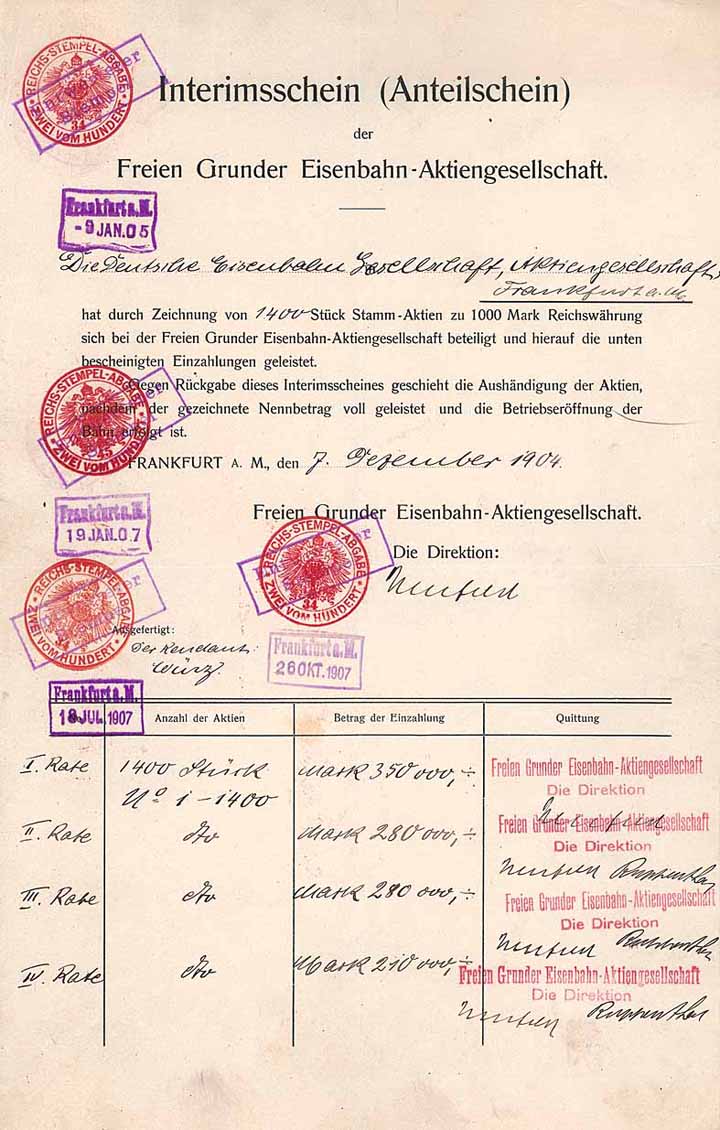 REICHS-STEMPEL-ABGABE
ZWEI VOM HUNDERT
34
Interimsschein (Anteilschein)
der
Freien Grunder Eisenbahn-Aktiengesellschaft.
Frankfurt a.M.
- 9 JAN. 05
Die Deutsche Eisenbahn Gesellschaft, Aktiengesellschaft,
Frankfurt a.M.
hat durch Zeichnung von 1400 Stück Stamm-Aktien zu 1000 Mark Reichswährung
sich bei der Freien Grunder Eisenbahn-Aktiengesellschaft beteiligt und hierauf die unten
bescheinigten Einzahlungen geleistet.
Gegen Rückgabe dieses Interimsscheines geschieht die Aushändigung der Aktien,
nachdem der gezeichnete Nennbetrag voll geleistet und die Betriebseröffnung der
Bahn erfolgt ist.
REICHS-STEMPEL-ABGABE
ZWEI VOM HUNDERT
45
FRANKFURT A. M., den 7. Dezember 1904.
Frankfurt a.M.
19 JAN. 07
Freien Grunder Eisenbahn-Aktiengesellschaft.
Die Direktion:
REICHS-STEMPEL-ABGABE
ZWEI VOM HUNDERT
34
REICHS-STEMPEL-ABGABE
ZWEI VOM HUNDERT
34
Ausgefertigt:
Der Rendant:
Würz.
Frankfurt a.M.
26 OKT. 1907
Frankfurt a.M.
18 JUL. 1907
Anzahl der Aktien Betrag der Einzahlung Quittung
I. Rate 1400 Stück Mark 350 000,÷ Freien Grunder Eisenbahn-Aktiengesellschaft
Die Direktion
No 1-1400
II. Rate dto Mark 280 000,÷ Freien Grunder Eisenbahn-Aktiengesellschaft
Die Direktion
III. Rate dto Mark 280 000,÷ Freien Grunder Eisenbahn-Aktiengesellschaft
Die Direktion
IV. Rate dto Mark 210 000,÷ Freien Grunder Eisenbahn-Aktiengesellschaft
Die Direktion